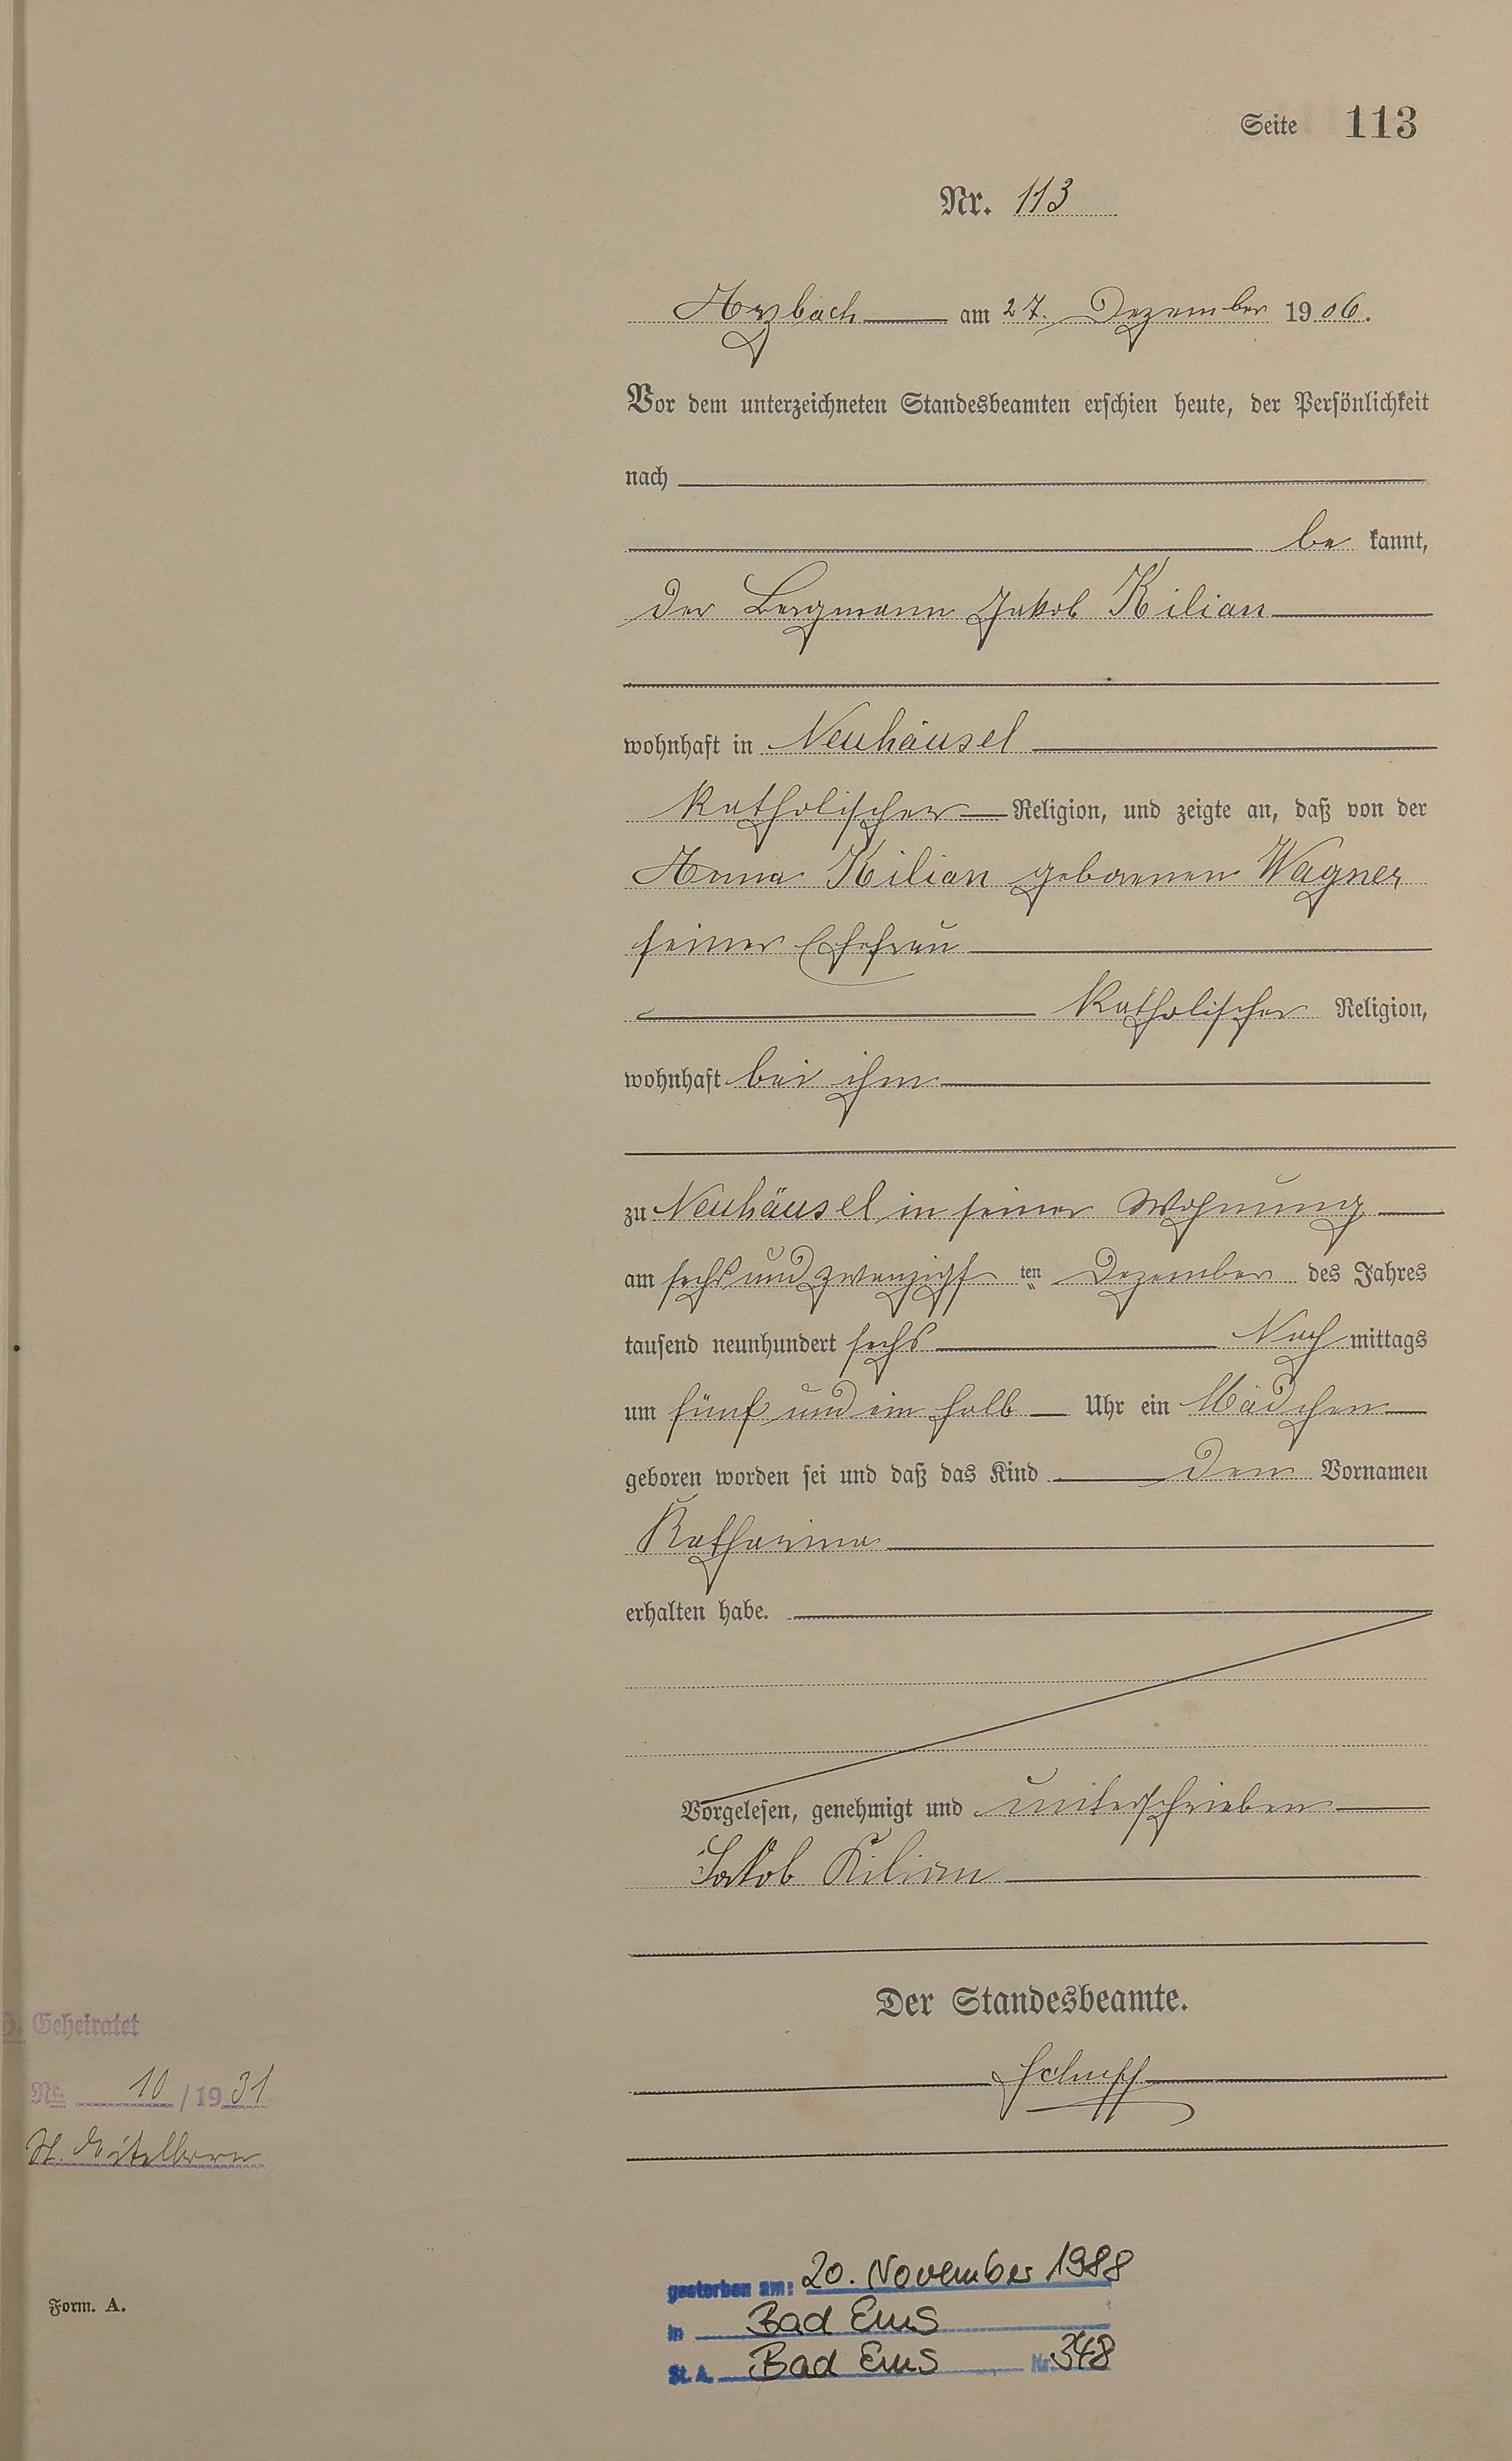 Seite 113
Nr. 113
Arzbach am 27. Dezember 1906.
Vor dem unterzeichneten Standesbeamten erschien heute, der Persönlichkeit
nach
be kannt,
der Bergmann Jakob Kilian
wohnhaft in Neuhäusel
katholischer Religion, und zeigte an, daß von der
Anna Kilian geborenen Wagner
seiner Ehefrau
katholischer Religion,
wohnhaft bei ihm
zu Neuhäusel in seiner Wohnung
am sechs und zwanzigsten Dezember des Jahres
tausend neunhundert sechs Nach mittags
um fünf und ein halb Uhr ein Mädchen
geboren worden sei und daß das Kind den Vornamen
Katharina
erhalten habe.
Vorgelesen, genehmigt und unterschrieben
Jakob Kilian
Der Standesbeamte.
Geheiratet
Nr. 10/1931
gestorben am: 20. November 1988
in Bad Ems
St. A. Bad Ems Nr. 348
Form. A.